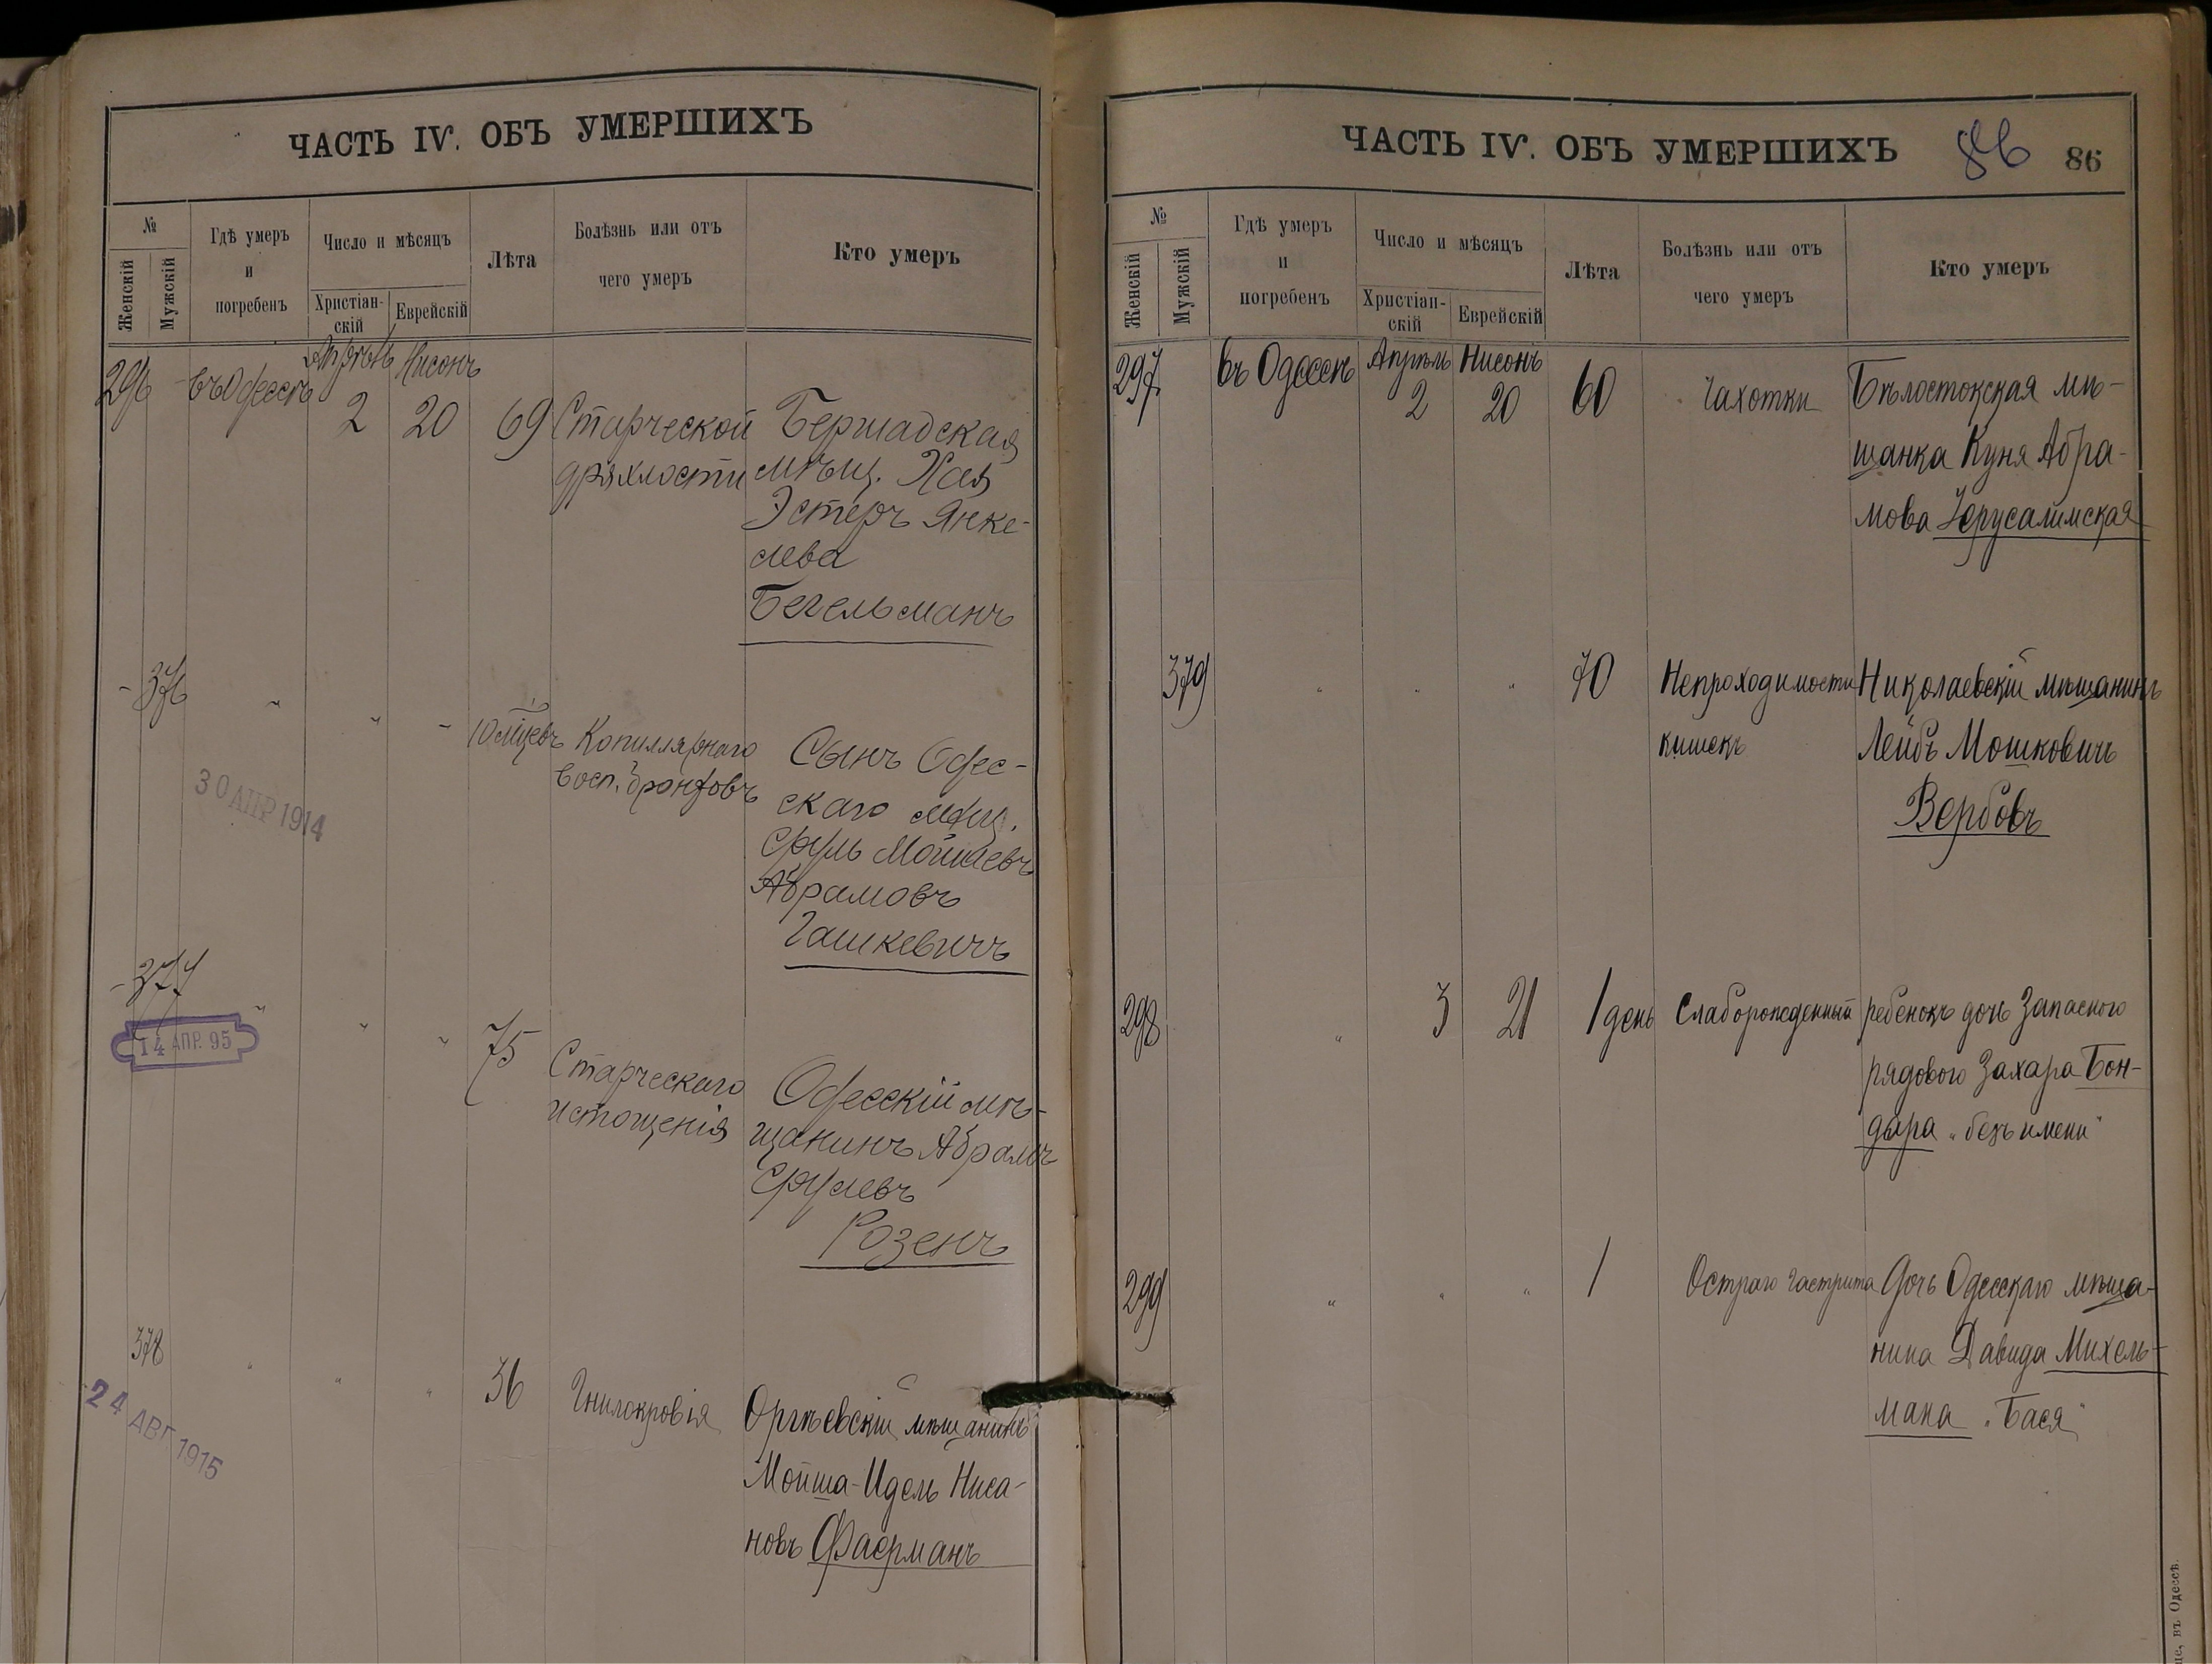 ЧАСТЬ IV. ОБЪ УМЕРШИХЪ
№
Женскій
Мужскій
Гдѣ умеръ
и
погребенъ
Число и мѣсяцъ
Христіан-
скій
Еврейскій
Лѣта
Болѣзнь или отъ
чего умеръ
Кто умеръ
296
въ Одессѣ
Апрѣль
2
Нисонъ
20
69
Старческой
дряхлости
Бершадская
мѣщ. Хая
Эстеръ Янке-
лева
Бегельманъ
376
" " "
10 мѣцевъ
Копиллярнаго
восп. бронховъ
Сынъ Одес-
скаго мѣщ.
Сруль Мойшевъ
Абрамовъ
Гашкевичъ
30 АПР 1914
377
14 АПР. 95
" " "
75
Старческаго
истощенія
Одесскій мѣ-
щанинъ Абрамъ
Срулевъ
Розенъ
378
24 АВГ 1915
" " "
36
Гнилокровія
Оргѣевскій мѣщанинъ
Мойша-Идель Ниса-
новъ Фаерманъ
ЧАСТЬ IV. ОБЪ УМЕРШИХЪ
86
86
№
Женскій
Мужскій
Гдѣ умеръ
и
погребенъ
Число и мѣсяцъ
Христіан-
скій
Еврейскій
Лѣта
Болѣзнь или отъ
чего умеръ
Кто умеръ
297
въ Одессѣ
Апрѣль
2
Нисонъ
20
60
Чахотки
Бѣлостокская мѣ-
щанка Куня Абра-
мова Іерусалимская
379
" " "
70
Непроходимости
кишекъ
Николаевскій мѣщанинъ
Лейбъ Мошковичъ
Вербовъ
298
"
3
21
1 день
Слаборожденный
ребенокъ дочь Запасного
рядового Захара Бон-
даря „безъ имени"
299
" " "
1
Остраго гастрита
Дочь Одесскаго мѣща-
нина Давида Михель-
мана „Бася"
це, въ Одессѣ.